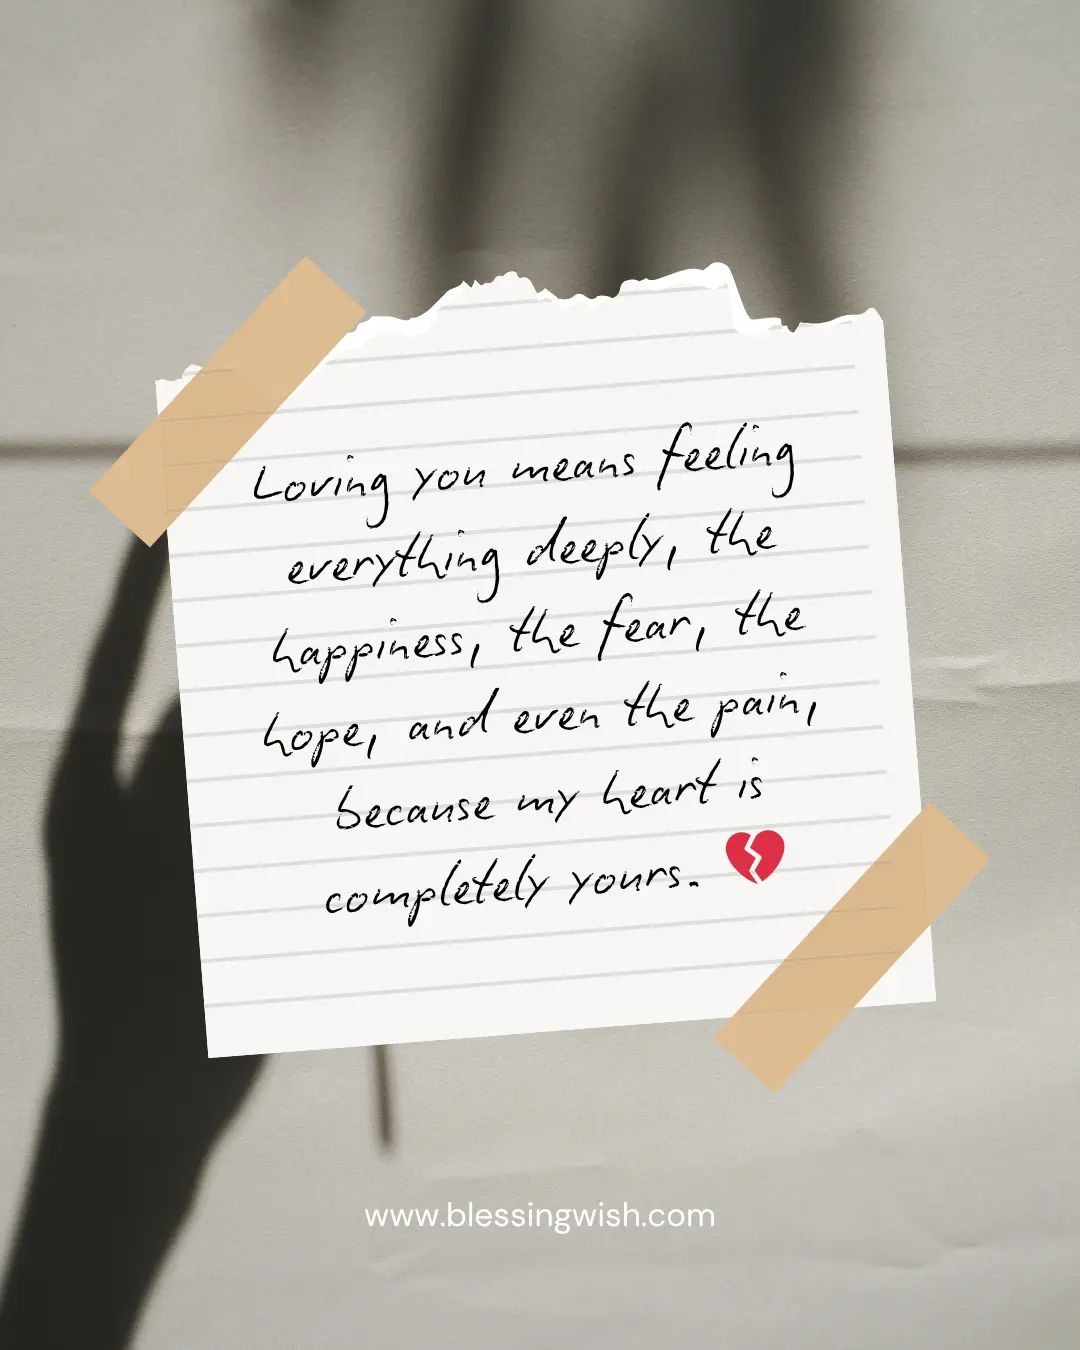 Loving you means feeling
everything deeply, the
happiness, the fear, the
hope, and even the pain,
because my heart is
completely yours. 💔
www.blessingwish.com